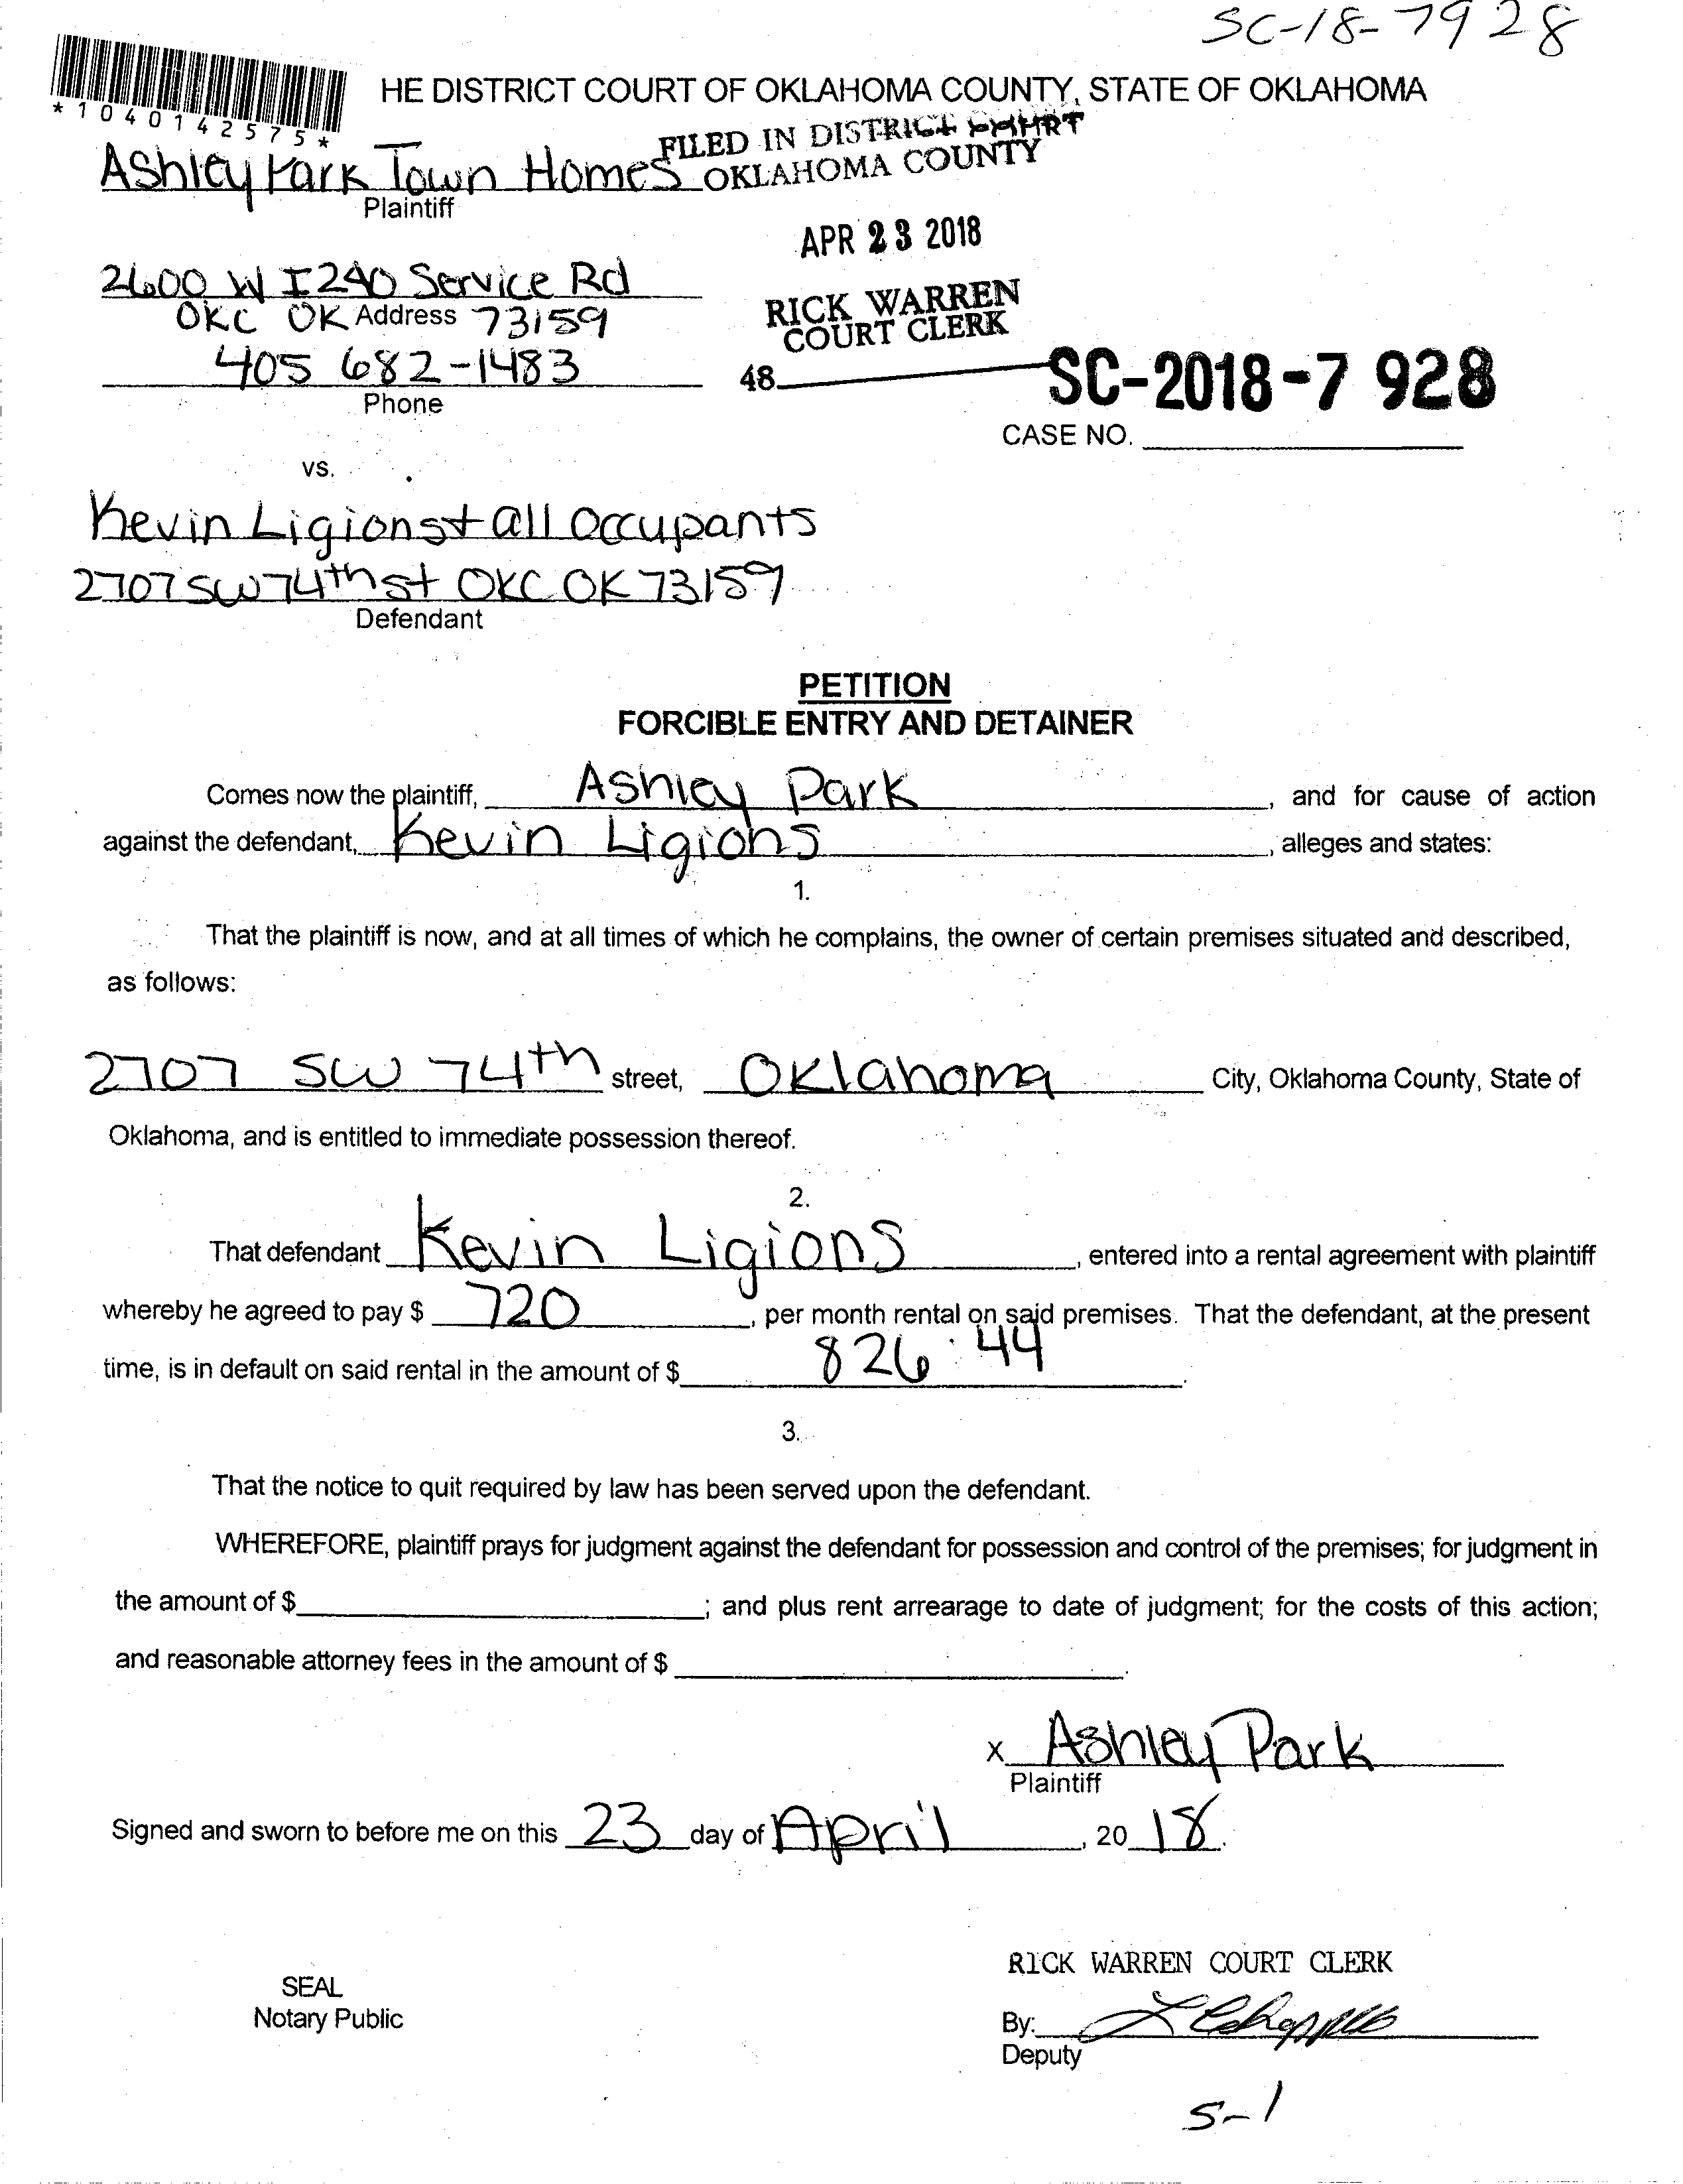 SC-18-7928
*1040142575*
HE DISTRICT COURT OF OKLAHOMA COUNTY, STATE OF OKLAHOMA
FILED IN DISTRICT COURT
OKLAHOMA COUNTY
Ashley Park Town Homes
Plaintiff
APR 23 2018
2600 W I240 Service Rd
OKC OK Address 73159
RICK WARREN
COURT CLERK
405 682-1483
48
SC-2018-7 928
Phone
CASE NO.
vs.
Kevin Ligions + all occupants
2707 SW 74th st OKC OK 73159
Defendant
PETITION
FORCIBLE ENTRY AND DETAINER
Comes now the plaintiff, Ashley Park, and for cause of action
against the defendant, Kevin Ligions, alleges and states:
1.
That the plaintiff is now, and at all times of which he complains, the owner of certain premises situated and described,
as follows:
2707 SW 74th street, Oklahoma City, Oklahoma County, State of
Oklahoma, and is entitled to immediate possession thereof.
2.
That defendant Kevin Ligions, entered into a rental agreement with plaintiff
whereby he agreed to pay $ 720, per month rental on said premises. That the defendant, at the present
time, is in default on said rental in the amount of $ 826.44.
3.
That the notice to quit required by law has been served upon the defendant.
WHEREFORE, plaintiff prays for judgment against the defendant for possession and control of the premises; for judgment in
the amount of $ ; and plus rent arrearage to date of judgment; for the costs of this action;
and reasonable attorney fees in the amount of $ .
X Ashley Park
Plaintiff
Signed and sworn to before me on this 23 day of April, 20 18.
RICK WARREN COURT CLERK
SEAL
Notary Public
By:
Deputy
5-1